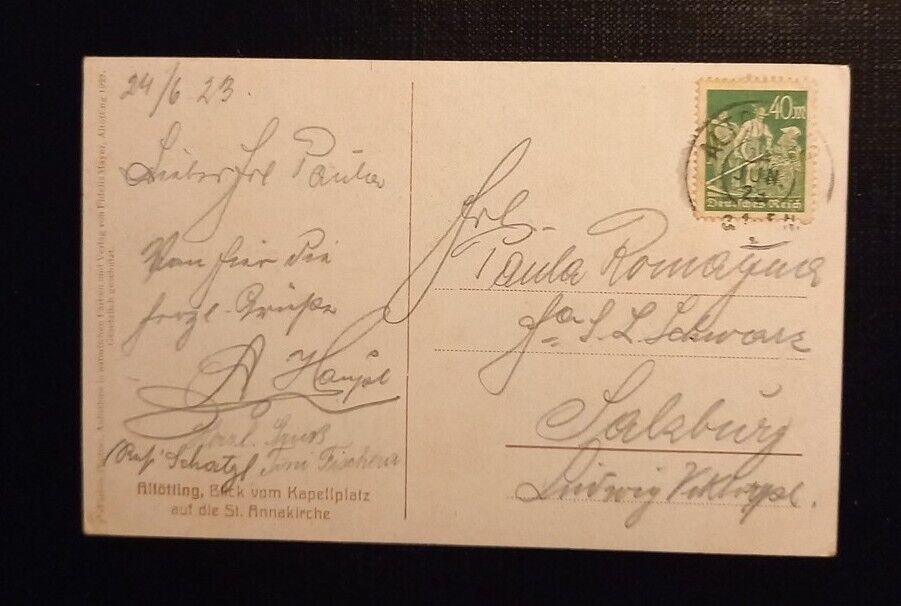 24/6 23.
Liebes Frl Paula
Von hier die
herzl. Grüße
A Haupl
Herzl. Gruß
Schatzl Toni Fischer
Altötting, Blick vom Kapellplatz
auf die St. Annakirche
Aufnahme in natürlichen Farben und Verlag von Fidelis Mayer, Altötting 1922.
Gesetzlich geschützt.
40m
Deutsches Reich
JUN
Frl.
Paula Romayma
Fa S. L. Schwarz
Salzburg
Ludwig Viktorpl.